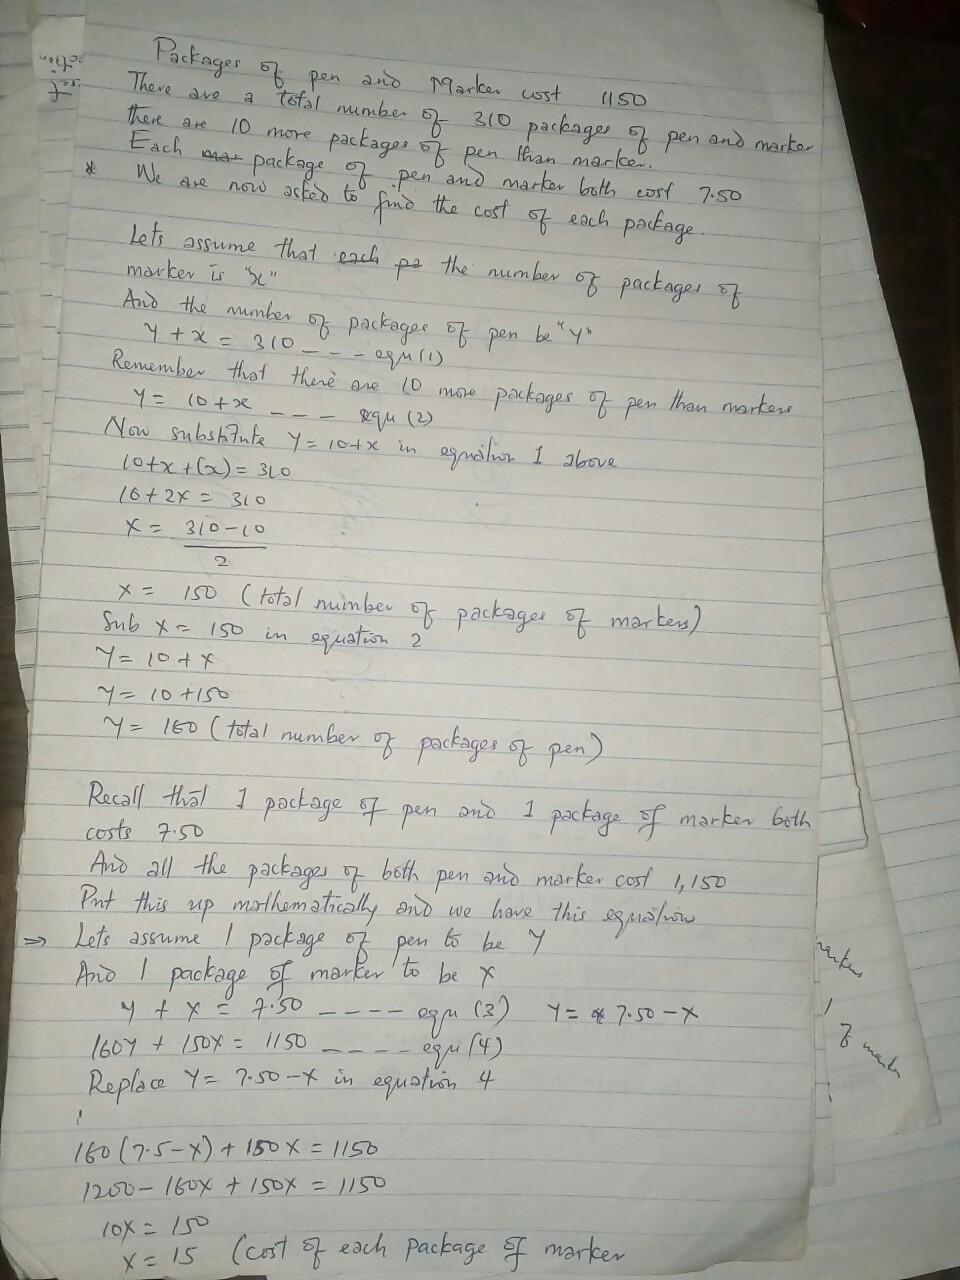 Packages of pen and Marker cost 1150
There are a total number of 310 packages of pen and marker
there are 10 more packages of pen than marker.
Each package of pen and marker both cost 7.50
* We are now asked to find the cost of each package.
Lets assume that each pa the number of packages of
marker is "x"
And the number of packages of pen be "y"
y + x = 310 --- equ(1)
Remember that there are 10 more packages of pen than markers
y = 10+x --- equ (2)
Now substitute y = 10+x in equation 1 above
10+x+(x) = 310
10+2x = 310
x = 310-10
2
x = 150 (total number of packages of markers)
Sub x = 150 in equation 2
y = 10 + x
y = 10 + 150
y = 160 (total number of packages of pen)
Recall that 1 package of pen and 1 package of marker both
costs 7.50
And all the packages of both pen and marker cost 1,150
Put this up mathematically and we have this equation
⇒ Lets assume 1 package of pen to be y
And 1 package of marker to be x
y + x = 7.50 ---- equ (3) y = 7.50 - x
160y + 150x = 1150 ---- equ (4)
Replace y = 7.50 - x in equation 4
160(7.5-x) + 150x = 1150
1200 - 160x + 150x = 1150
10x = 150
x = 15 (cost of each package of marker
markers
of mark